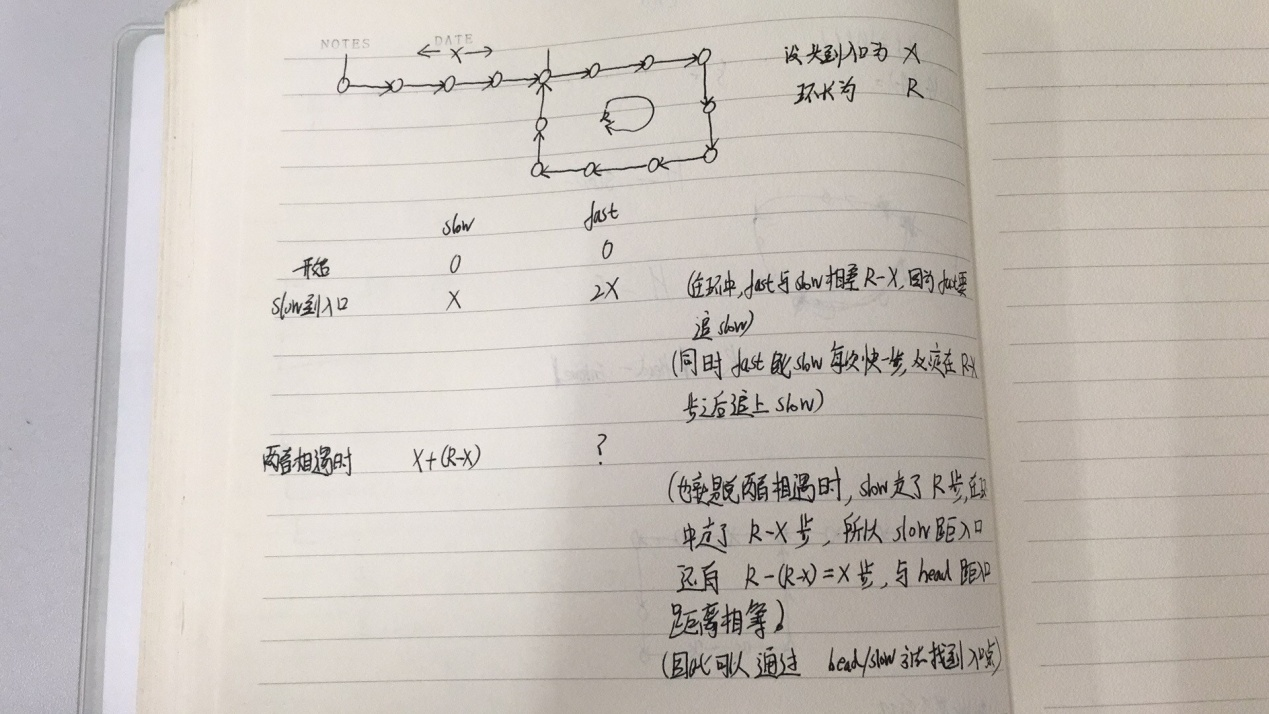 NOTES DATE
X
设头到入口为 X
环长为 R
R
slow fast
开始 0 0
slow到入口 X 2X (在环中,fast与slow相差 R-X,因为fast要
追slow)
(同时 fast 比 slow 每次快一步,必定在 R-X
步之后追上 slow)
两者相遇时 X+(R-X) ?
(也就是说两者相遇时,slow走了 R 步,在环
中走了 R-X 步,所以 slow距入口
还有 R-(R-X)=X 步,与 head 距入口
距离相等)
(因此可以通过 head/slow 方法找到入口点)